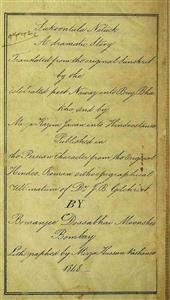 Sukoontula Natuck
A dramatic Story
Translated from the original Sunskrit
by the
celebrated poet Niwaz into Brij Bha
kha, and by
Mirza Kazim Juwan into Hindoostanee
Published in
the Persian Character from the Original
Hindee Roman orthoepigraphical
Ultimatum of Dr J. B. Gilchrist
BY
Bomanjee Dossabhai Moonshee
Bombay
Lithographed by Mirza Hussein
1848